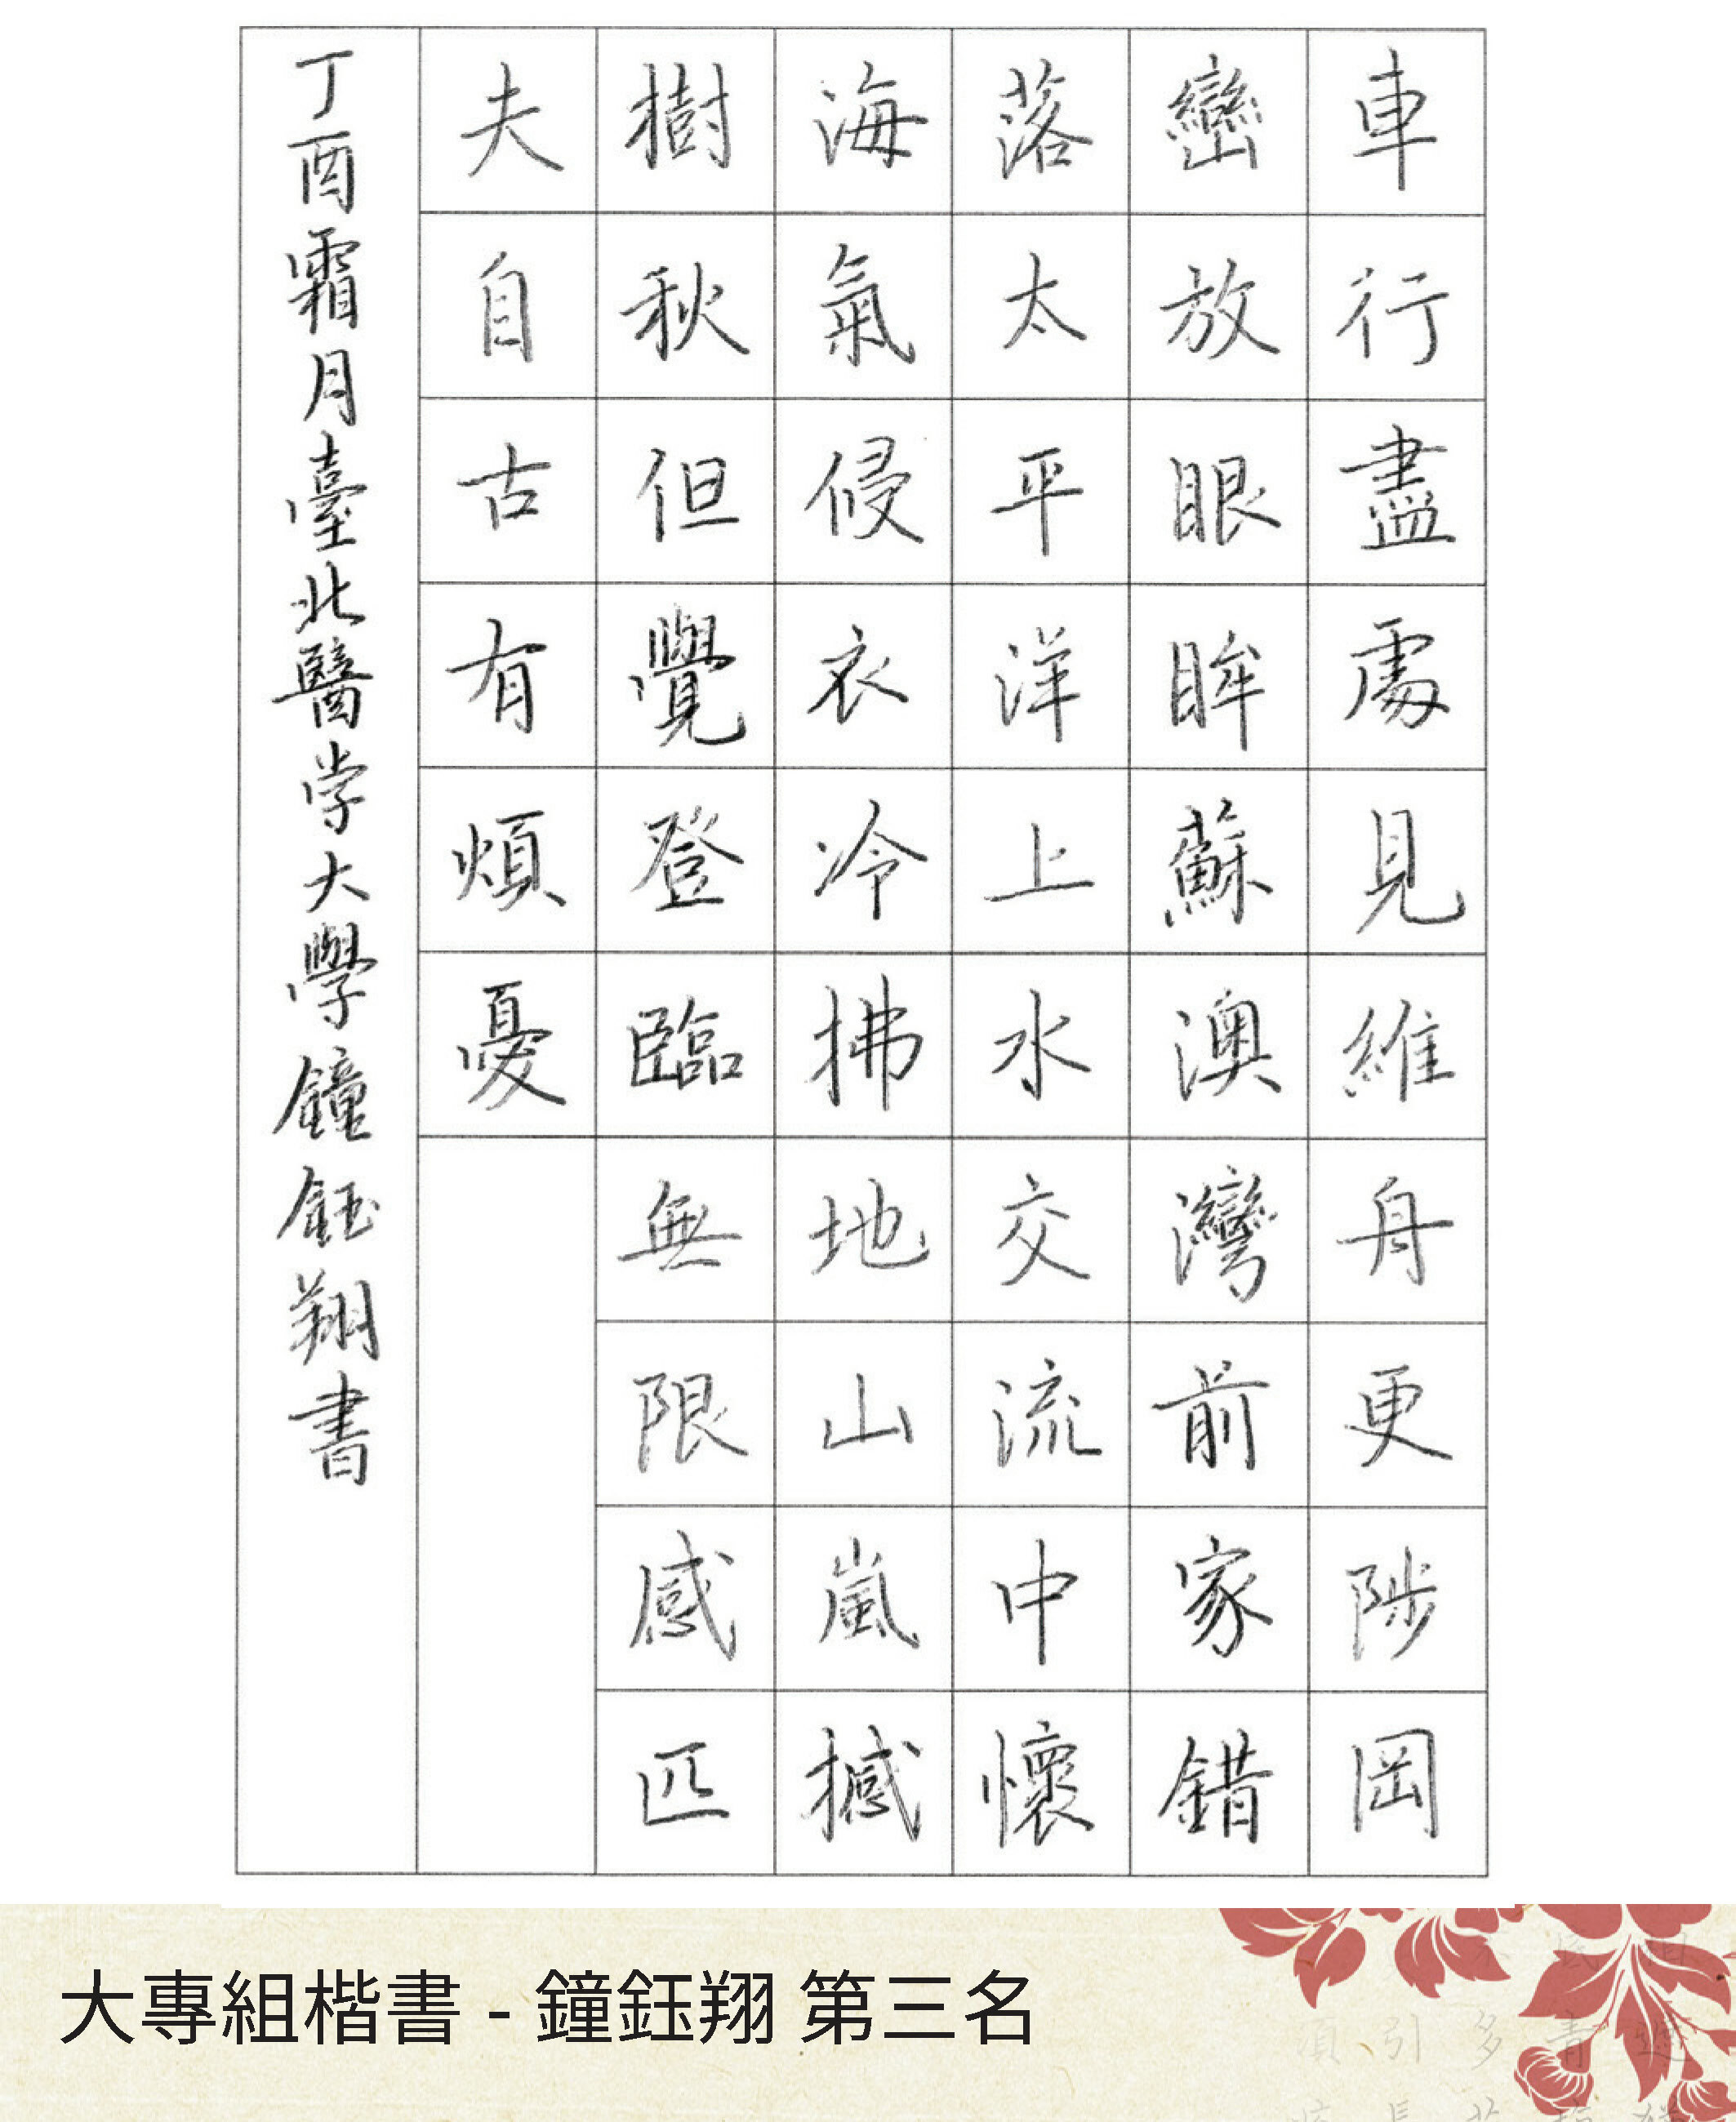 車行盡處見維舟更陟岡
巒放眼眸蘇澳灣前家錯
落太平洋上水交流中懷
海氣侵衣冷拂地山嵐撼
樹秋但覺登臨無限感匹
夫自古有煩憂
丁酉霜月臺北醫学大學鐘鈺翔書
大專組楷書 - 鐘鈺翔 第三名